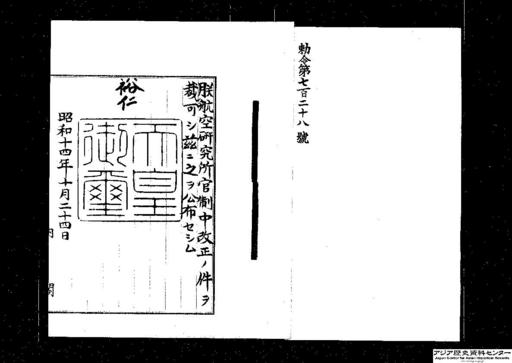 勅令第七百二十八號
朕航空研究所官制中改正ノ件ヲ
裁可シ茲ニ之ヲ公布セシム
裕仁
天皇
御璽
昭和十四年十月二十四日
内閣
アジア歴史資料センター
Japan Center for Asian Historical Records